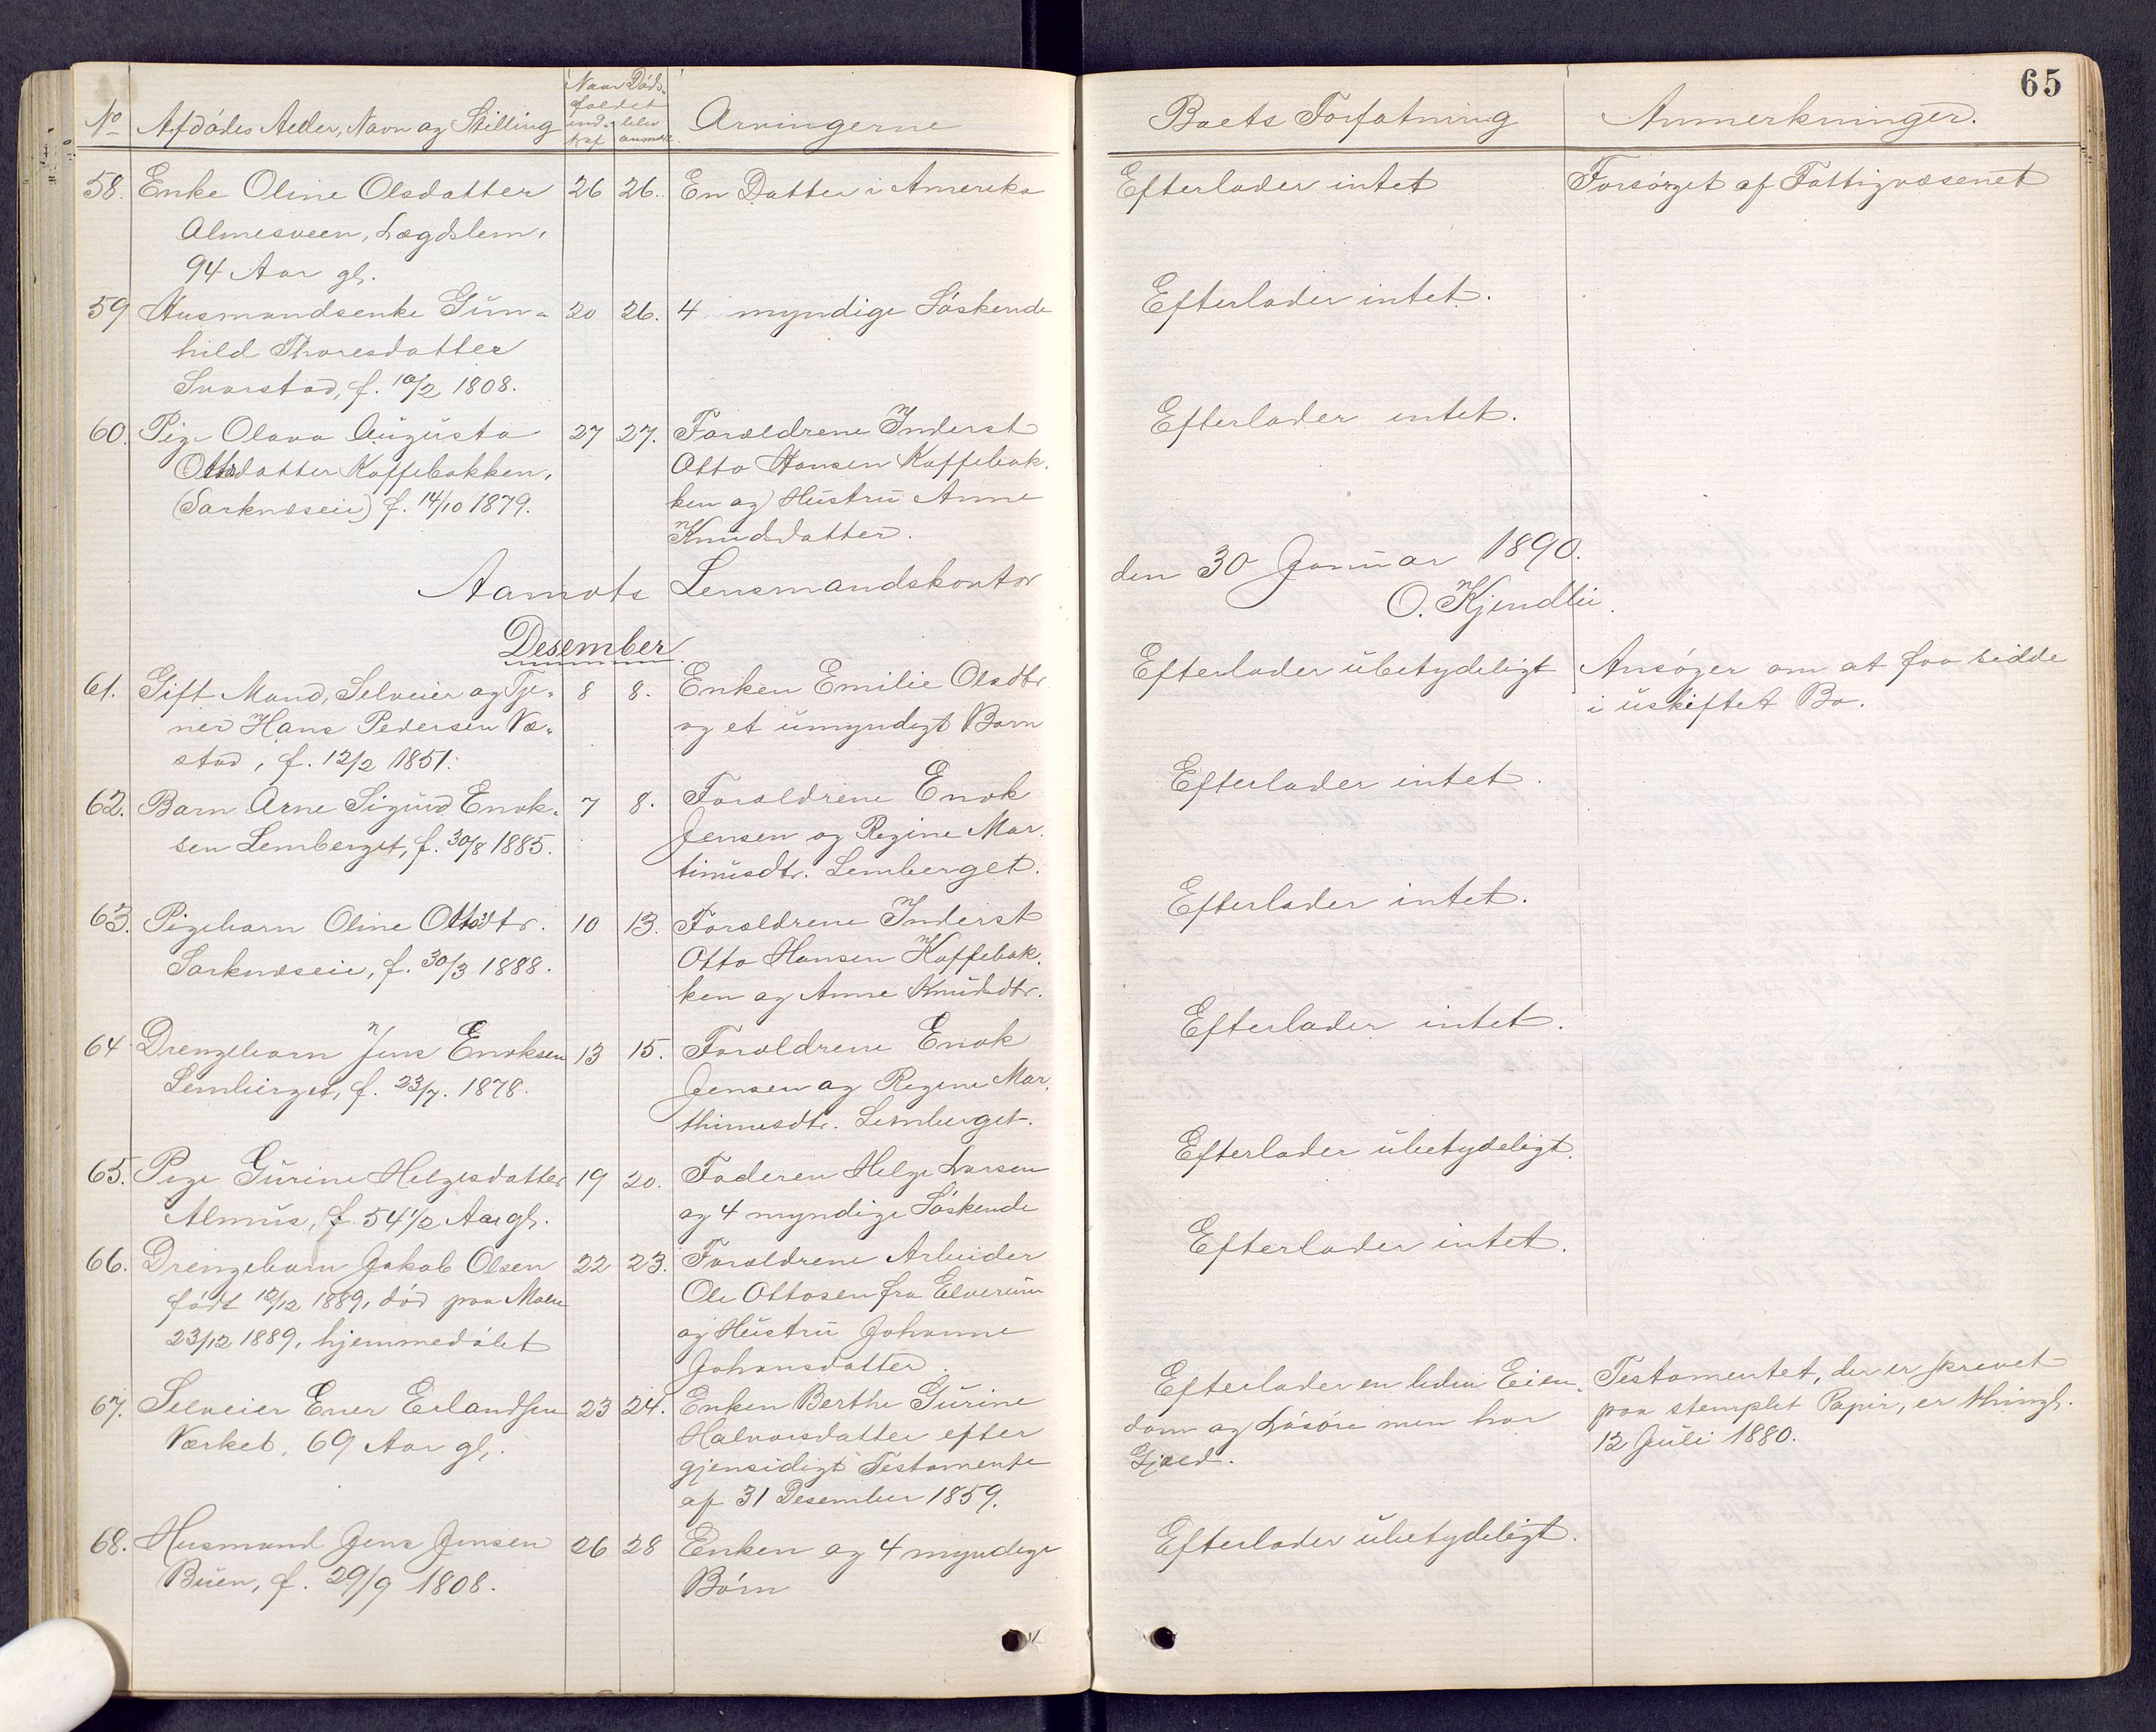 65
No Afdødes Alder, Navn og Stilling Naar Dødsfaldet indtraf blev anmeldt. Arvingerne Boets Forfatning Anmerkninger.
58. Enke Oline Olsdatter 26 26. En Datter i Amerika Efterlader intet Forsørget af Fattigvæsenet
Almesveen, Lægdslem,
94 Aar gl.
59 Husmandsenke Gun- 20 26. 4 myndige Søskende Efterlader intet.
hild Thoresdatter
Svarstad, f. 10/2 1808.
60. Pige Olava Augusta 27 27. Forældrene Inderst Efterlader intet.
Ottosdatter Kaffebakken, Otto Hansen Kaffebak-
(Sorknæseie) f. 14/10 1879. ken og Hustru Anne
Knudsdatter.
Aamots Lensmandskontor den 30 Januar 1890.
O. Kjendlie.
Desember
61. Gift Mand, Selveier og Tje- 8 8. Enken Emilie Olsdtr Efterlader ubetydeligt Ansøger om at faa sidde
ner Hans Pedersen Næ- og et umyndigt Barn i uskiftet Bo.
stad, f. 12/2 1851.
62. Barn Arne Sigurd Enok- 7 8. Forældrene Enok Efterlader intet.
sen Lemberget, f. 30/8 1885. Jensen og Regine Mar-
tinusdtr. Lemberget.
63. Pigebarn Oline Ottosdtr. 10 13. Forældrene Inderst Efterlader intet.
Sorknæseie, f. 30/3 1888. Otto Hansen Kaffebak-
ken og Anne Knudsdtr.
64 Drengebarn Jens Enoksen 13 15. Forældrene Enok Efterlader intet.
Lemberget, f. 23/7. 1878. Jensen og Regine Mar-
thinusdtr. Lemberget.
65. Pige Gurine Helgesdatter 19 20. Faderen Helge Larsen Efterlader ubetydeligt.
Almus, f. 54 1/2 Aar gl. og 4 myndige Søskende
66. Drengebarn Jakob Olsen 22 23. Forældrene Arbeider Efterlader intet.
født 12/12 1889, død paa Moen Ole Ottosen fra Elverum
23/12 1889, hjemmedøbt og Hustru Johanne
Johansdatter.
67. Selveier Ener Erlandsen 23 24. Enken Berthe Gurine Efterlader en liden Eien- Testamentet, der er skrevet
Værket, 69 Aar gl. Halvorsdatter efter dom og Løsøre men har paa stemplet Papir, er thingl.
gjensidigt Testamente Gjæld. 12 Juli 1880.
af 31 Desember 1859.
68. Husmand Jens Jensen 26 28 Enken og 4 myndige Efterlader ubetydeligt.
Buen, f. 29/9 1808. Børn